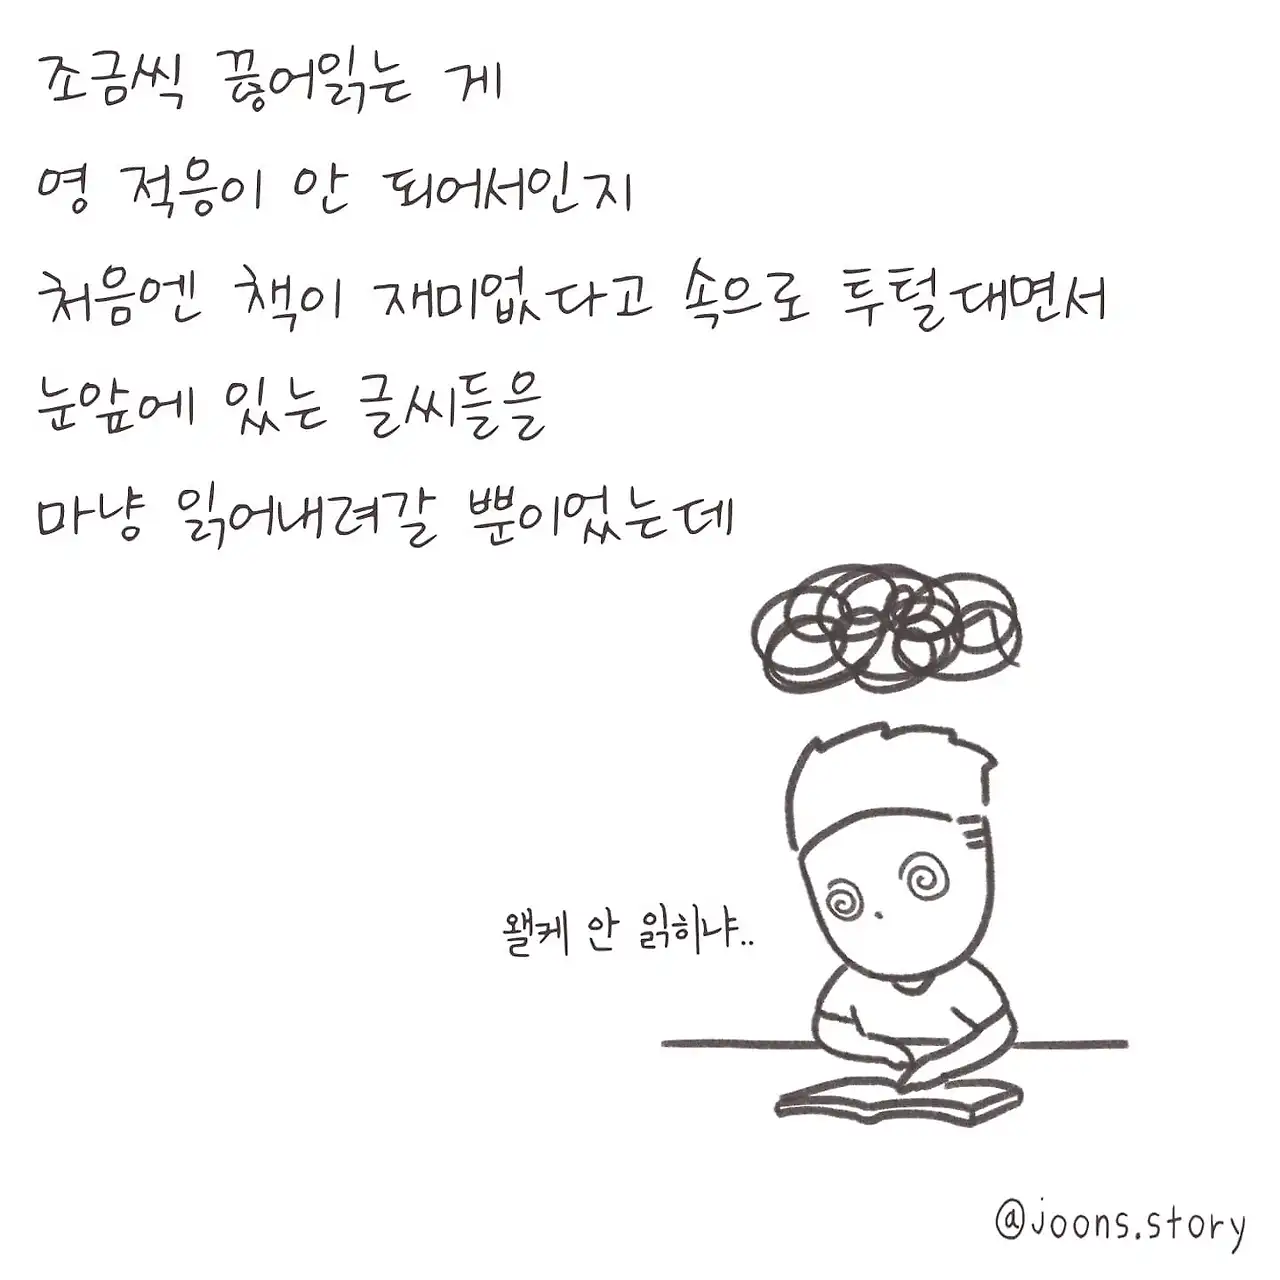 조금씩 끊어읽는 게
영 적응이 안 되어서인지
처음엔 책이 재미없다고 속으로 투털대면서
눈앞에 있는 글씨들을
마냥 읽어내려갈 뿐이었는데
왤케 안 읽히냐..
@joons.story